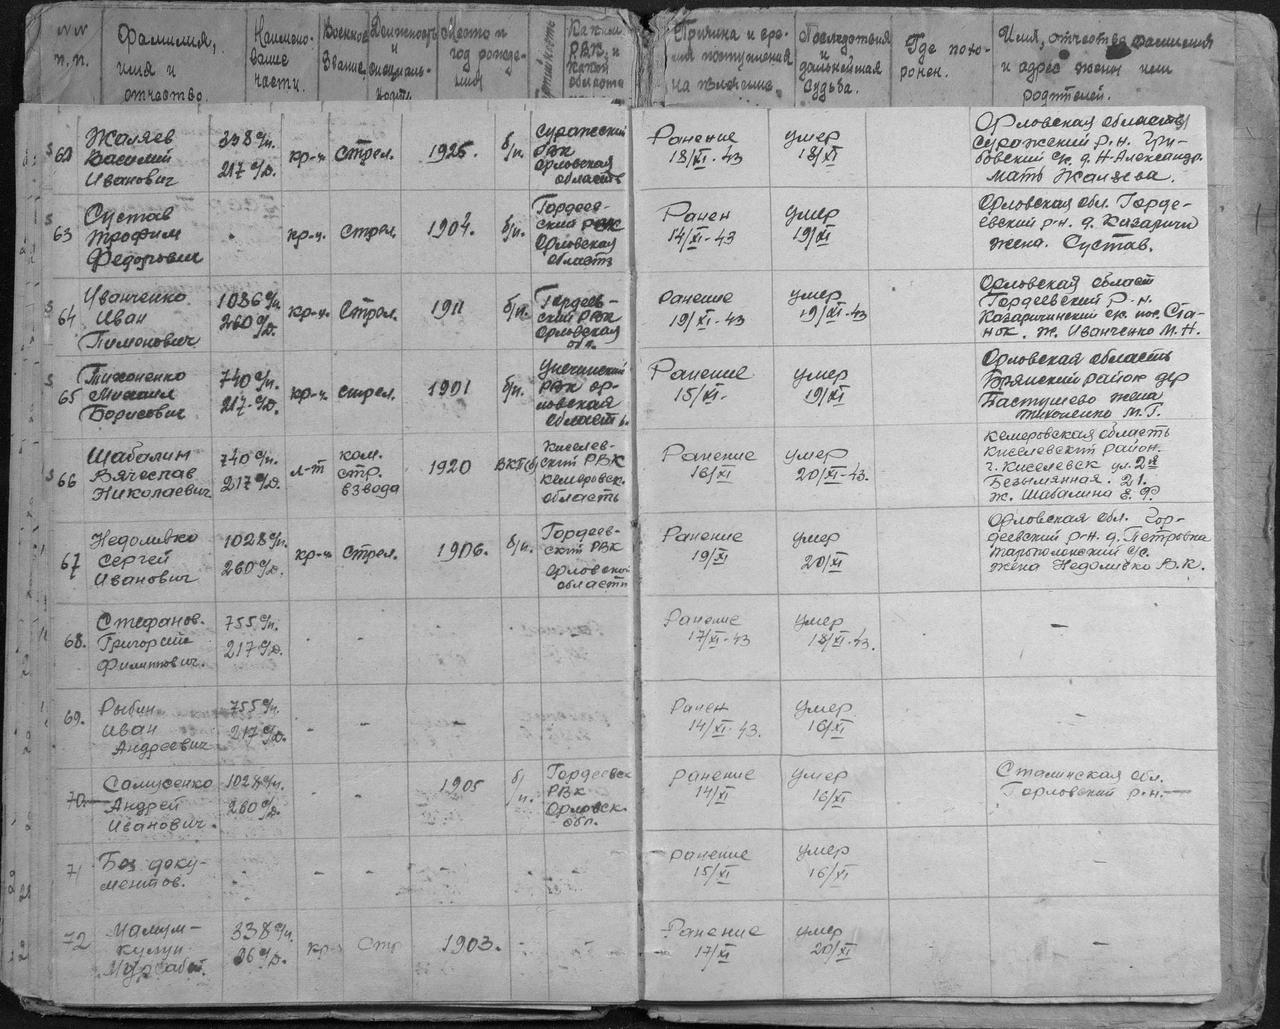 №№ п.п.
Фамилия, имя и отчество.
Наимено-вание части.
Военное Звание.
Должность и специаль-ность
Место и год рожде-ния
Каким РВК и какой области
Причина и вре-мя поступления на лечение.
Последствия и дальнейшая судьба.
Где похо-ронен.
Имя, отчество, фамилия и адрес жены или родителей.
62
Жаляев
Василий
Иванович
338 с/п.
217 с/д.
кр-ц
стрел.
1925.
б/п.
Суражский
РВК
Орловская
область
Ранение
18/XI-43
умер
18/XI
Орловская область
Суражений р.н.
бовский с/с. д. Н-Александр.
Мать Жаляева.
63
Сустав
Трофим
Федорович
кр-ц.
Стрел.
1904.
б/п.
Гордеев-
ский РВК
Орловская
область
Ранен
14/XI-43
умер
19/XI
Орловская обл. Горде-
евский р-н. д. Казаричи
жена. Сустав.
64
Иванченко
Иван
Пимонович
1036 с/п.
260 с/д.
кр-ц
Стрел.
1911
б/п.
Гордеев-
ский РВК
Орловская
обл.
Ранение
19/XI-43
умер
19/XI-43
Орловская област
Гордеевский р-н.
Казаричинский с/с. пос. Ста-
нок. ж. Иванченко М.Н.
65
Тихоненко
Михаил
Борисович
740 с/п.
217 с/д.
кр-ц
стрел.
1901
б/п.
РВК Ор-
ловская
област ь.
Ранение
15/XI.
умер
19/XI
Орловская область
Брянский район дер
Бастушево жена
Тихоненко М.Г.
66
Шабалин
Вячеслав
Николаевич
740 с/п.
217 с/д.
л-т
ком.
стр.
взвода
1920
ВКП(б)
Киселев-
ский РВК
Кемеровск.
область
Ранение
16/XI
умер
20/XI-43.
Кемеровская область
Киселевский район.
г. Киселевск ул. 2я
Безымянная. 21.
ж. Шабалина Е. Ф.
67
Недоливко
Сергей
Иванович
1028 с/п.
260 с/д.
кр-ц
Стрел.
1906.
б/п.
Гордеев-
ский РВК
Орловской
области
Ранение
19/XI
умер
20/XI
Орловская обл. Гор-
деевский р-н. д. Петровка
с/с.
жена Недоливко В.К.
68.
Стефанов.
Григорий
Филиппович.
755 с/п.
217 с/д.
-
-
-
Ранение
17/XI-43
умер
18/XI-43.
-
69.
Рыбин
Иван
Андреевич
755 с/п.
217 с/д.
-
-
-
Ранен
14/XI-43.
умер
16/XI
-
70
Самусенко
Андрей
Иванович.
1028 с/п.
260 с/д.
-
-
1905
б/п.
Гордеевск
РВК
Орловск.
обл.
Ранение
14/XI
умер
16/XI
Сталинская обл.
Горловский р.н.
71
Без доку-
ментов.
-
-
-
-
-
-
Ранение
15/XI
умер
16/XI
-
72
Мамум-
кулун
338 с/п.
96 с/д.
кр-ц
Стр
1903.
-
-
Ранение
17/XI
умер
20/XI
-